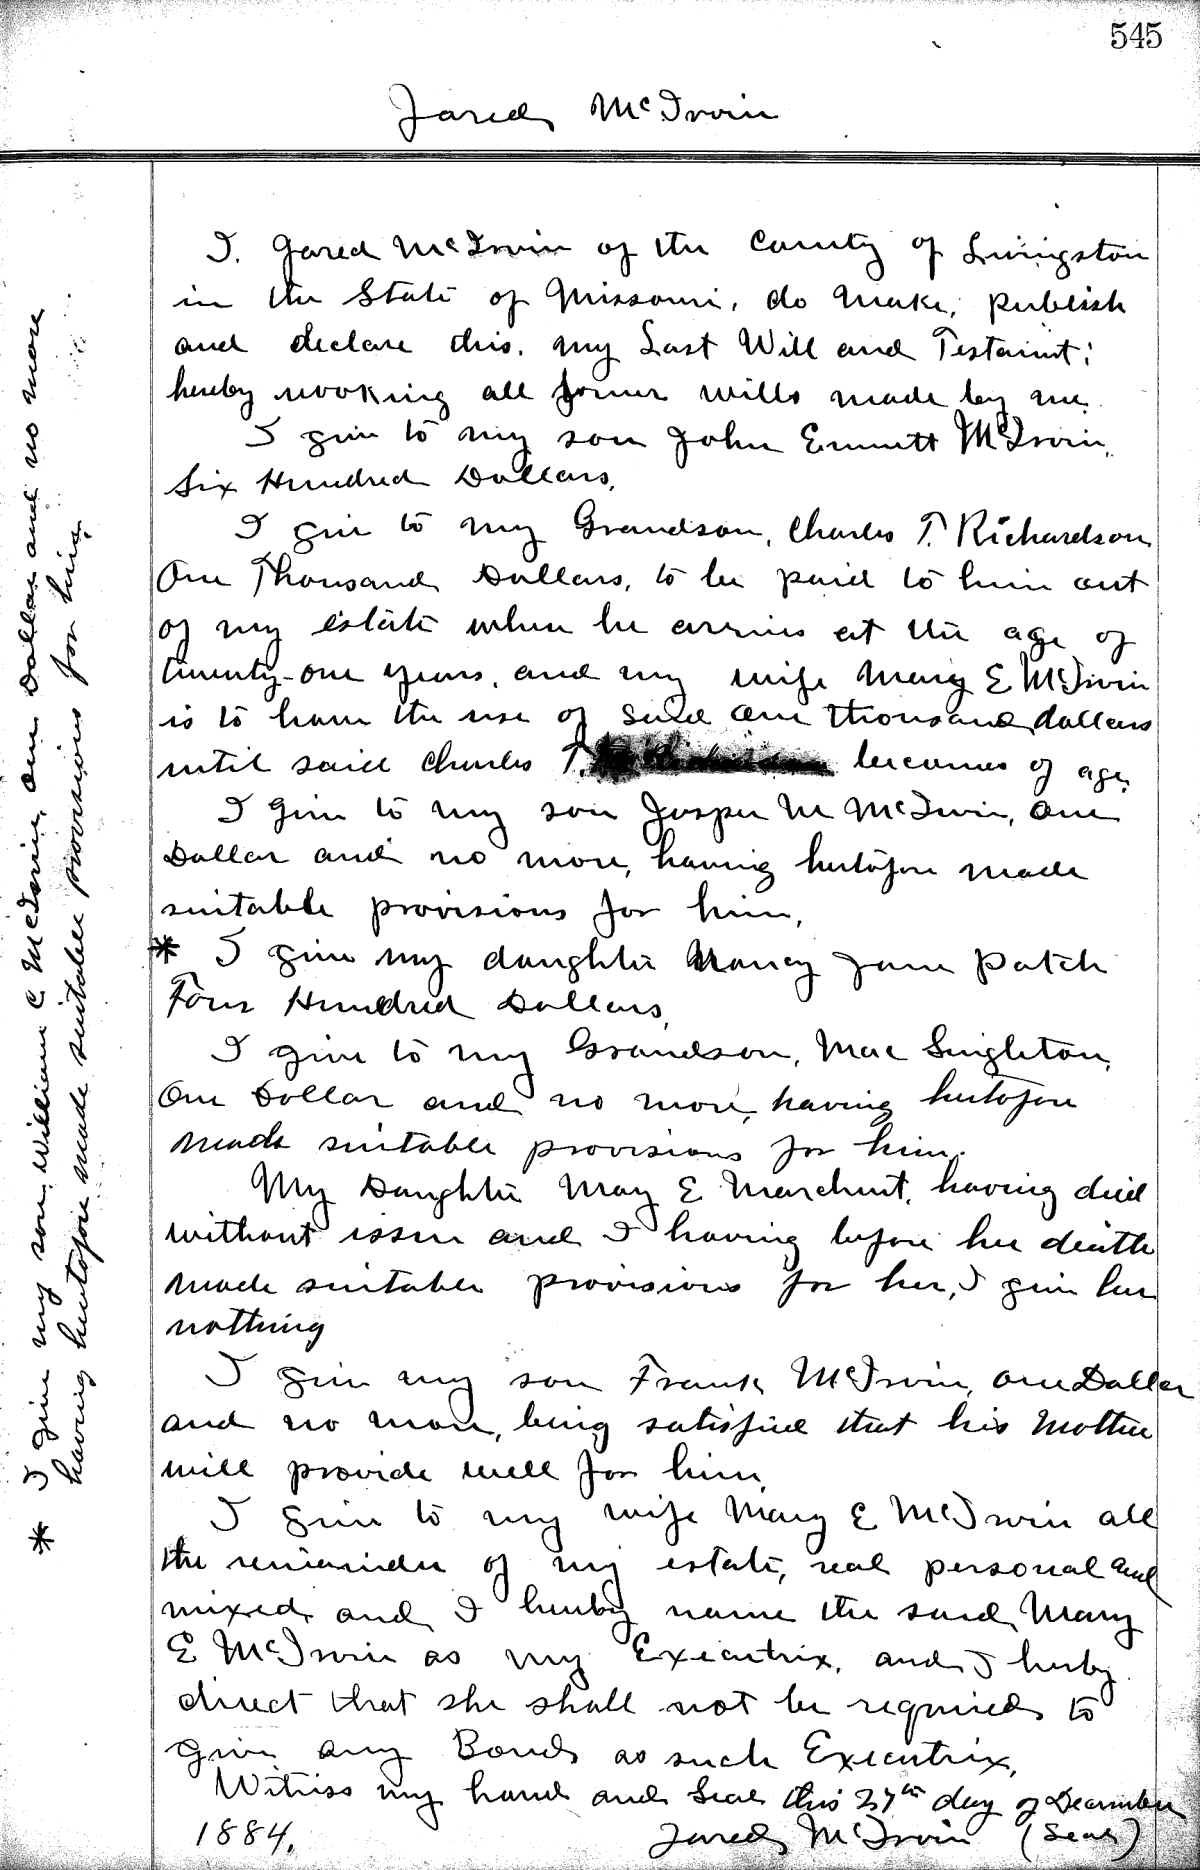 545
Jared McIrvin
I. Jared McIrvin of the County of Livingston
in the State of Missouri, do make, publish
and declare this, my Last Will and Testament;
hereby revoking all former wills made by me.
I give to my son John Emmett McIrvin,
Six Hundred Dollars,
I give to my Grandson, Charles T. Richardson
One Thousand Dollars, to be paid to him out
of my estate when he arrives at the age of
twenty-one years, and my wife Mary E McIrvin
is to have the use of said one thousand dollars
until said Charles T. becomes of age,
I give to my son Jasper M McIrvin, One
Dollar and no more, having heretofore made
suitable provisions for him,
* I give my daughter Nancy Jane Patch
Four Hundred Dollars,
I give to my Grandson, Mac Singleton,
One Dollar and no more, having heretofore
made suitable provisions for him.
My Daughter May E Marchent, having died
without issue and I having before her death
made suitable provisions for her, I give her
nothing
I give my son Frank McIrvin, one Dollar
and no more, being satisfied that his Mother
will provide well for him,
I give to my wife Mary E McIrvin all
the remainder of my estate, real personal and
mixed, and I hereby name the said, Mary
E McIrvin as my Executrix, and I hereby
direct that she shall not be required to
give any Bond as such Executrix,
Witness my hand and Seal this 27th day of December
1884. Jared McIrvin (Seal)
* I give my son, William C McIrvin, one Dollar and no more
having heretofore made suitable provisions for him,